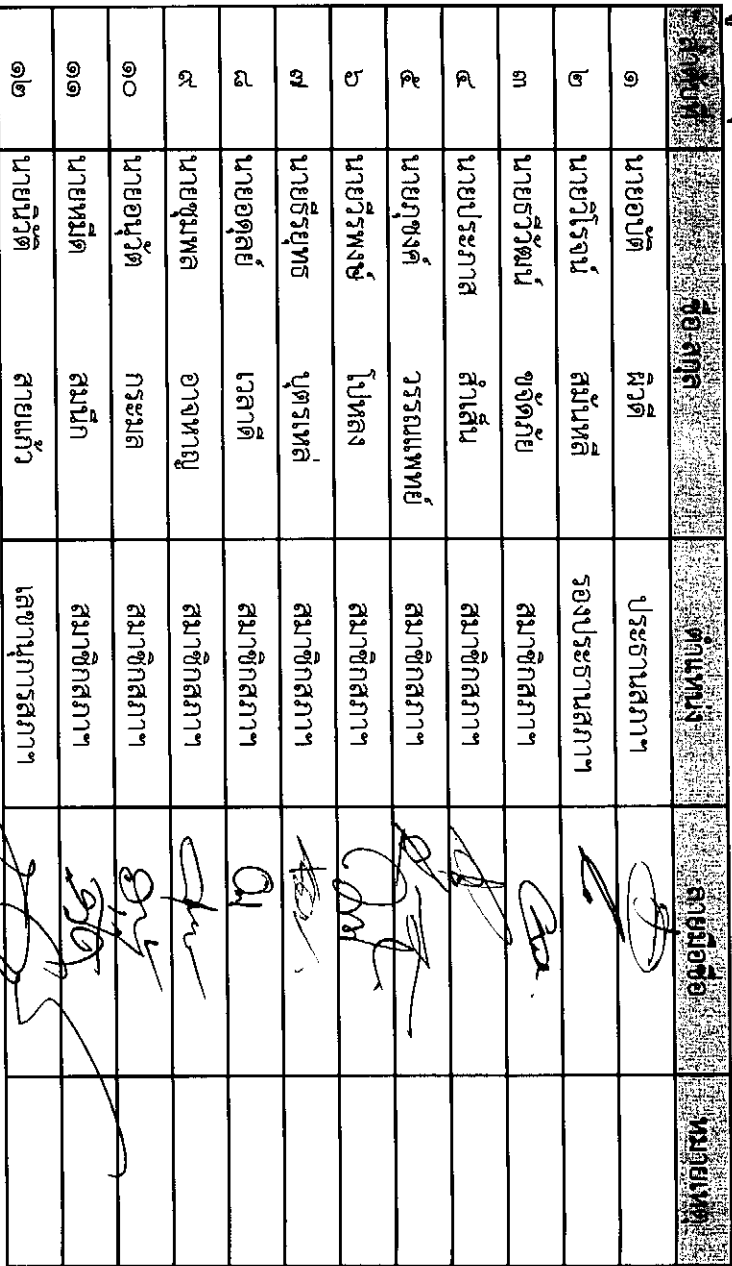 ลำดับที่ ชื่อ-สกุล ตำแหน่ง ลายมือชื่อ หมายเหตุ
๑ นายอบัติ ผิวดี ประธานสภาฯ
๒ นายวิโรจน์ สมันหลี รองประธานสภาฯ
๓ นายธวิวัฒน์ ขจัดภัย สมาชิกสภาฯ
๔ นายประภาส สำเส็น สมาชิกสภาฯ
๕ นายภุชงค์ วรรณแพทย์ สมาชิกสภาฯ
๖ นายวีรพงษ์ โปหลง สมาชิกสภาฯ
๗ นายธีรยุทธ บุตรเหล่ สมาชิกสภาฯ
๘ นายอดุลย์ เวลาดี สมาชิกสภาฯ
๙ นายชุมพล อาจหาญ สมาชิกสภาฯ
๑๐ นายอนุวัต กระมล สมาชิกสภาฯ
๑๑ นายหมีด สมนึก สมาชิกสภาฯ
๑๒ นายนิวัติ สายแก้ว เลขานุการสภาฯ